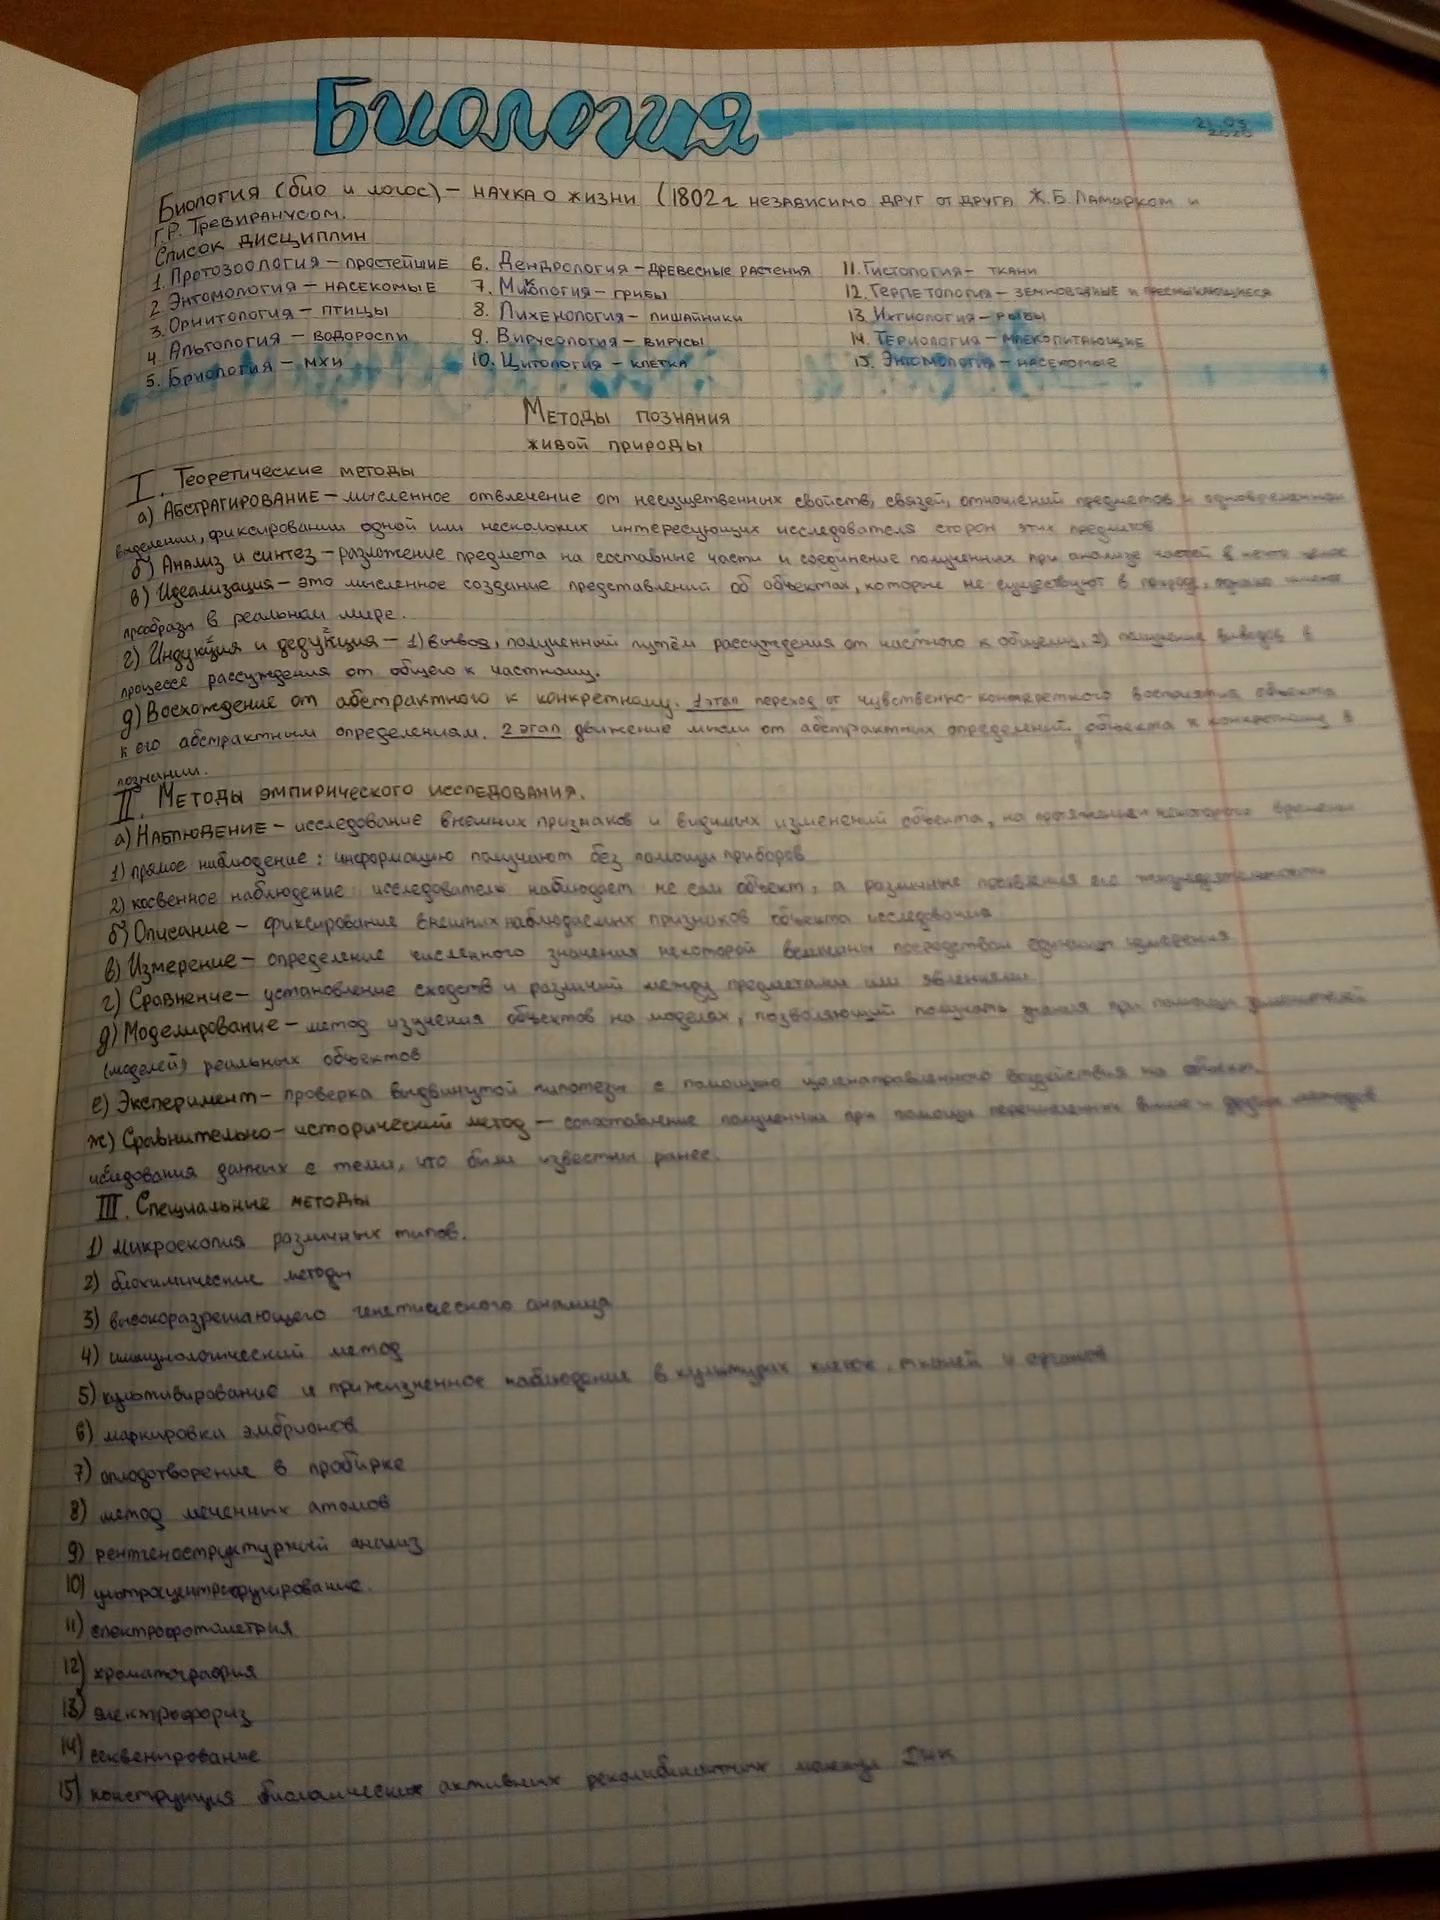 Биология
21.03
2020
Биология (био и логос) – наука о жизни (1802г независимо друг от друга Ж.Б. Ламарком и
Г.Р. Тревиранусом.
Список дисциплин
1. Протозоология – простейшие
2 Энтомология – насекомые
3. Орнитология – птицы
4. Альгология – водоросли
5. Бриология – мхи
6. Дендрология – древесные растения
7. Микология – грибы
8. Лихенология – лишайники
9. Вирусология – вирусы
10. Цитология – клетка
11. Гистология – ткани
12. Герпетология – земноводные и пресмыкающиеся
13. Ихтиология – рыбы
14. Териология – млекопитающие
15. Энтомология – насекомые
Методы познания
живой природы
I. Теоретические методы
а) Абстрагирование – мысленное отвлечение от несущественных свойств, связей, отношений предметов и одновременном
выделении, фиксировании одной или нескольких интересующих исследователя сторон этих предметов
б) Анализ и синтез – разложение предмета на составные части и соединение полученных при анализе частей в целое
в) Идеализация – это мысленное создание представлений об объектах, которые не существуют в природе, однако имеют
прообразы в реальном мире.
г) Индукция и дедукция – 1) вывод, полученный путём рассуждения от частного к общему, 2) получение выводов в
процессе рассуждения от общего к частному.
д) Восхождение от абстрактного к конкретному. 1 этап переход от чувственно-конкретного восприятия объекта
к его абстрактным определениям. 2 этап движение мысли от абстрактных определений объекта к конкретному в
познании.
II. Методы эмпирического исследования.
а) Наблюдение – исследование внешних признаков и видимых изменений объекта, на протяжении некоторого времени
1) прямое наблюдение: информацию получают без помощи приборов
2) косвенное наблюдение: исследователь наблюдает не сам объект, а различные его жизнедеятельности
б) Описание – фиксирование внешних наблюдаемых признаков объекта исследования
в) Измерение – определение численного значения некоторой величины посредством единицы измерения
г) Сравнение – установление сходств и различий между предметами или явлениями
д) Моделирование – метод изучения объектов на моделях, позволяющий получать знания при помощи заменителей
(моделей) реальных объектов
е) Эксперимент – проверка выдвинутой гипотезы с помощью целенаправленного воздействия на объект.
ж) Сравнительно-исторический метод – сопоставление полученных при помощи перечисленных выше и других методов
данных с теми, что были известны ранее.
III. Специальные методы
1) микроскопия различных типов.
2) биохимические методы
3) высокоразрешающего генетического анализа
4) иммунологический метод
5) культивирование и прижизненное наблюдение в культурах клеток, тканей и органов
6) маркировки эмбрионов
7) оплодотворение в пробирке
8) метод меченных атомов
9) рентгеноструктурный анализ
10) ультрацентрифугирование.
11) спектрофотометрия
12) хроматография
13) электрофориз
14) секвенирование
15) конструкция биологических активных рекомбинантных молекул ДНК